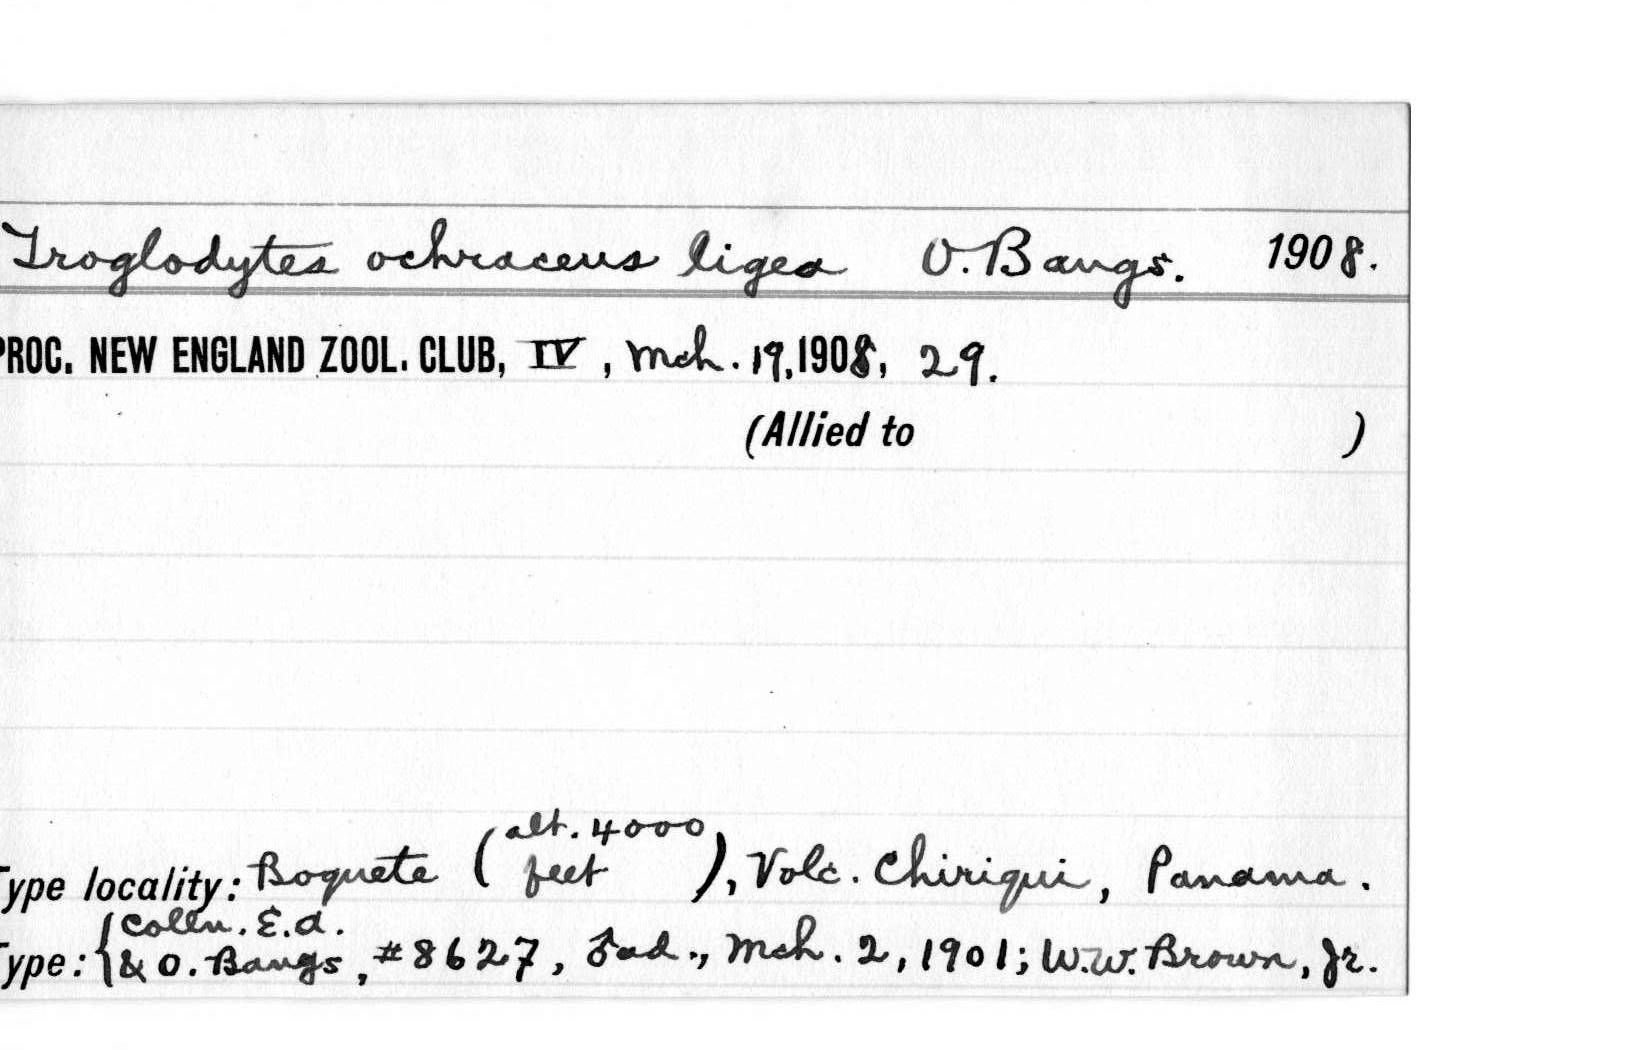 Troglodytes ochraceus ligea O. Bangs. 1908.
PROC. NEW ENGLAND ZOOL. CLUB, IV, Mch. 19, 1908, 29.
(Allied to )
Type locality: Boquete (alt. 4000 feet), Volc. Chiriqui, Panama.
Type: {Colln. E.A. & O. Bangs, #8627, ♂ ad., Mch. 2, 1901; W.W. Brown, Jr.